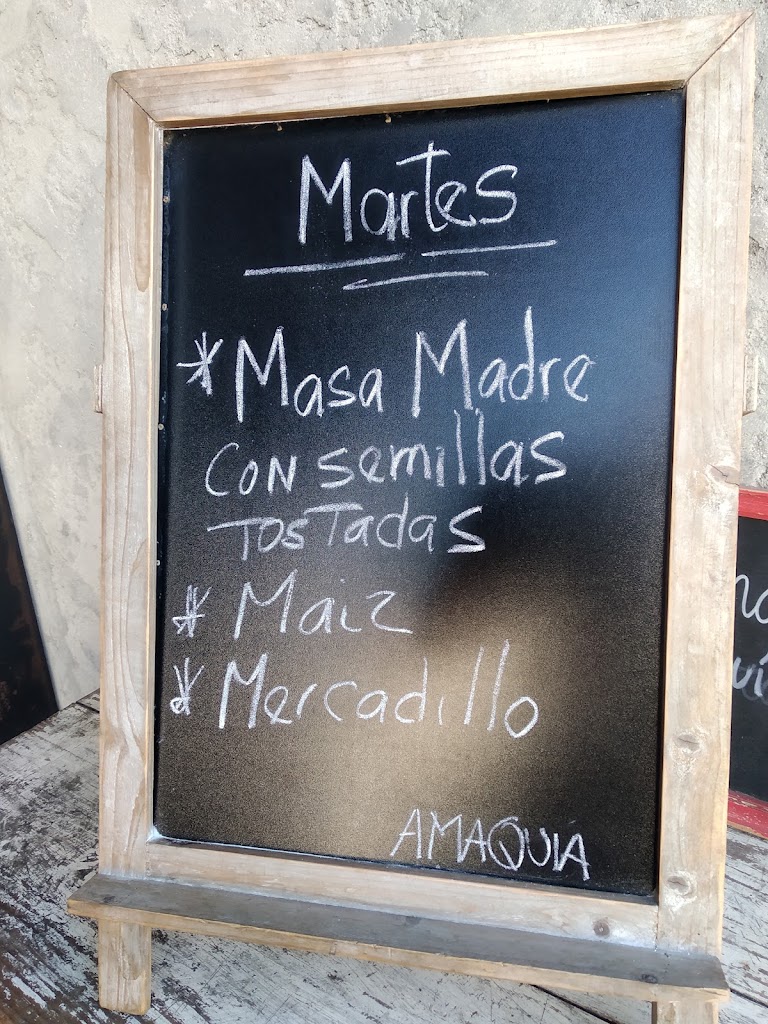 Martes
* Masa Madre
con semillas
Tostadas
* Maiz
* Mercadillo
AMAQUIA